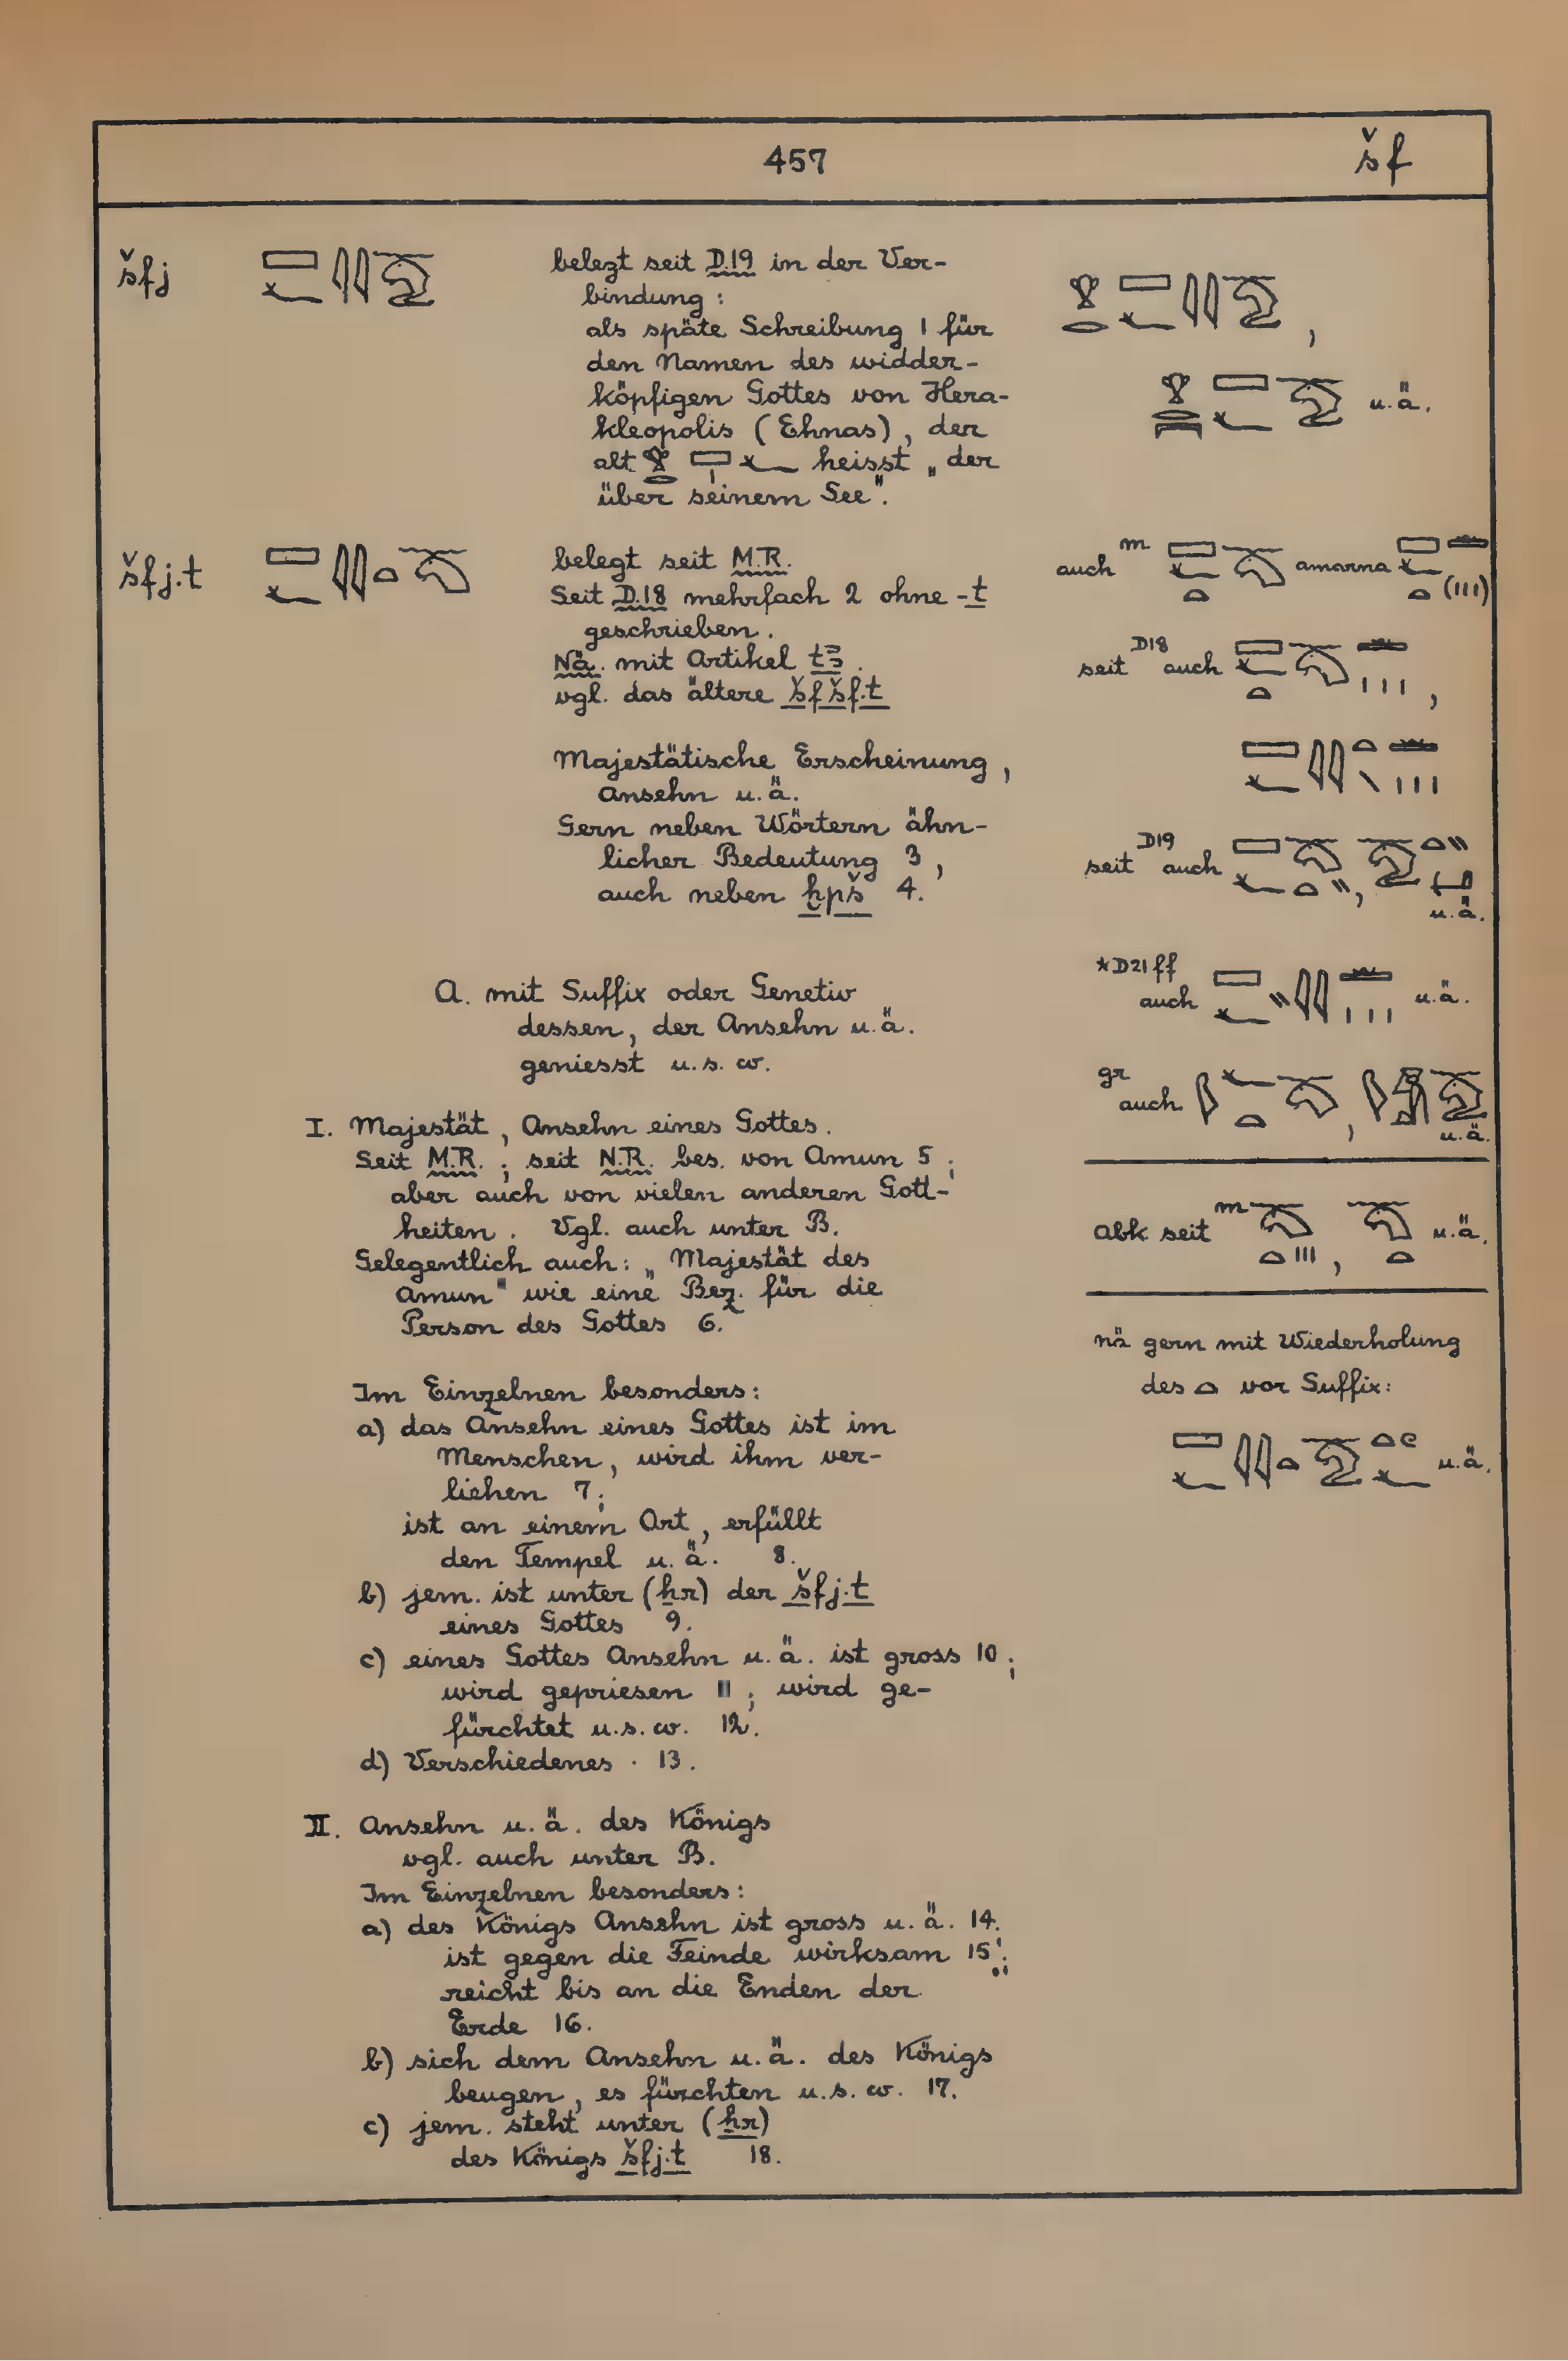 457 šf
šfj
belegt seit D.19 in der Ver-
bindung :
als späte Schreibung 1 für
den Namen des widder-
köpfigen Gottes von Hera-
kleopolis (Ehnas), der
alt heisst „der
über seinem See".
u.ä.
šfj.t
belegt seit M.R.
Seit D.18 mehrfach 2 ohne -t
geschrieben.
Nä. mit Artikel tꜣ.
vgl. das ältere šfšf.t
Majestätische Erscheinung,
Ansehn u.ä.
Gern neben Wörtern ähn-
licher Bedeutung 3,
auch neben ḫpš 4.
A. mit Suffix oder Genetiv
dessen, der Ansehn u.ä.
geniesst u.s.w.
I. Majestät, Ansehn eines Gottes.
Seit M.R.; seit N.R. bes. von Amun 5;
aber auch von vielen anderen Gott-
heiten. Vgl. auch unter B.
Gelegentlich auch: „Majestät des
Amun" wie eine Bez. für die
Person des Gottes 6.
Im Einzelnen besonders:
a) das Ansehn eines Gottes ist im
Menschen, wird ihm ver-
liehen 7;
ist an einem Ort, erfüllt
den Tempel u.ä. 8.
b) jem. ist unter (ẖr) der šfj.t
eines Gottes 9.
c) eines Gottes Ansehn u.ä. ist gross 10;
wird gepriesen 11; wird ge-
fürchtet u.s.w. 12.
d) Verschiedenes . 13.
II. Ansehn u.ä. des Königs
vgl. auch unter B.
Im Einzelnen besonders:
a) des Königs Ansehn ist gross u.ä. 14.
ist gegen die Feinde wirksam 15;
reicht bis an die Enden der
Erde 16.
b) sich dem Ansehn u.ä. des Königs
beugen, es fürchten u.s.w. 17.
c) jem. steht unter (ẖr)
des Königs šfj.t 18.
auch m amarna
seit D18 auch
seit D19 auch
u.ä.
*D21ff
auch u.ä.
gr
auch
u.ä.
Abk. seit m u.ä.
nä gern mit Wiederholung
des vor Suffix:
u.ä.